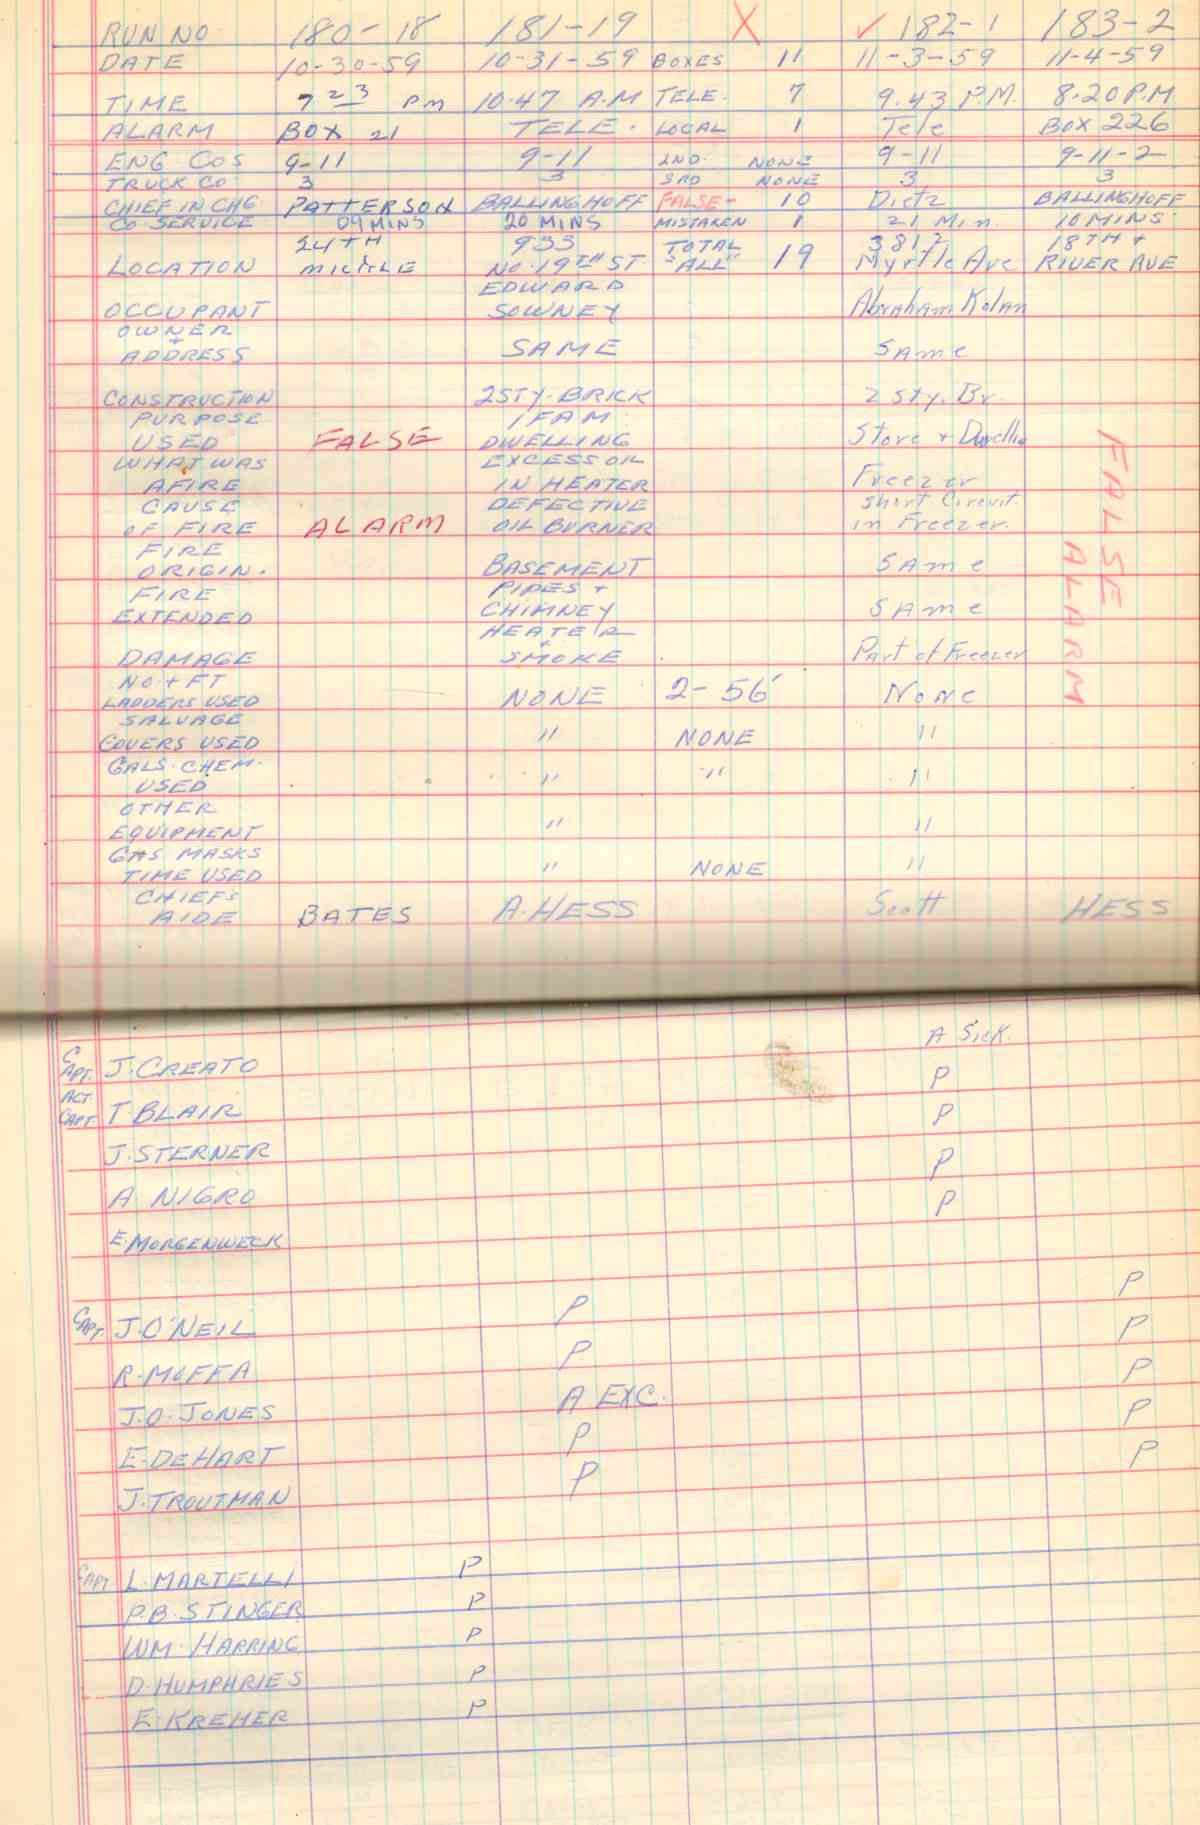 RUN NO 180-18 181-19 X ✓ 182-1 183-2
DATE 10-30-59 10-31-59 BOXES 11 11-3-59 11-4-59
TIME 7 23 PM 10.47 A.M TELE. 7 9.43 P.M. 8.20 P.M
ALARM BOX 21 TELE. LOCAL 1 Tele BOX 226
ENG COS 9-11 9-11 2ND. NONE 9-11 9-11-2
TRUCK CO 3 3 3RD NONE 3 3
CHIEF IN CHG PATTERSON BALLINGHOFF FALSE- 10 Dietz BALLINGHOFF
CO SERVICE 09 MINS 20 MINS MISTAKEN 1 21 Min. 10 MINS
24TH 933 TOTAL 19 381? 18TH +
LOCATION MICKLE NO. 19TH ST. "ALL" Myrtle Ave RIVER AVE
EDWARD
OCCUPANT SOWNEY Abraham Kolan
OWNER
+
ADDRESS SAME SAme
CONSTRUCTION 2STY-BRICK 2 Sty. Br.
PURPOSE 1 FAM.
USED FALSE DWELLING Store + Dwellin
WHAT WAS EXCESS OIL
AFIRE IN HEATER Freezer
CAUSE DEFECTIVE Short Circuit
OF FIRE ALARM OIL BURNER in Freezer.
FIRE
ORIGIN. BASEMENT SAme
FIRE PIPES +
EXTENDED CHIMNEY SAme
HEATER
+
DAMAGE SMOKE Part of Freezer
FALSE
ALARM
NO + FT
LADDERS USED NONE 2-56' None
SALVAGE
COVERS USED " NONE "
GALS. CHEM.
USED " " "
OTHER
EQUIPMENT " "
GAS MASKS
TIME USED " NONE "
CHIEFS
AIDE BATES A. HESS Scott HESS
CAPT. J. CREATO A Sick.
ACT. CAPT. T. BLAIR P
J. STERNER P
A. NIGRO P
E. MORGENWECK P
CAPT. J. O'NEIL P P
R. MOFFA P P
J. O. JONES A EXC. P
E. DEHART P P
J. TROUTMAN P P
CAPT. L. MARTELLI P
P. B. STINGER P
WM. HARRING P
D. HUMPHRIES P
E. KREHER P